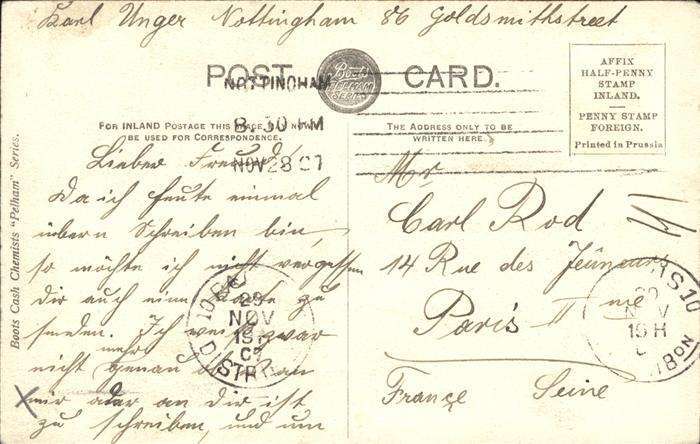 Karl Unger Nottingham 86 Goldsmithstreet
POST CARD.
Boots
"PELHAM"
SERIES
NOTTINGHAM
8-30 PM
NOV 28 07
AFFIX
HALF-PENNY
STAMP
INLAND.
PENNY STAMP
FOREIGN.
Printed in Prussia
FOR INLAND POSTAGE THIS SPACE MAY NOW
BE USED FOR CORRESPONDENCE.
THE ADDRESS ONLY TO BE
WRITTEN HERE
Boots Cash Chemists "Pelham" Series.
Lieber Freund!
Da ich heute einmal
übern Schreiben bin,
so möchte ich nicht vergessen
dir auch eine Karte zu
senden. Ich weiß zwar
nicht mehr genau ob an
mir oder an dir ist
zu schreiben, und um
Mr
Carl Rod
14 Rue des Jeûneurs
Paris II me
France Seine
29
NOV
DISTR
NOV